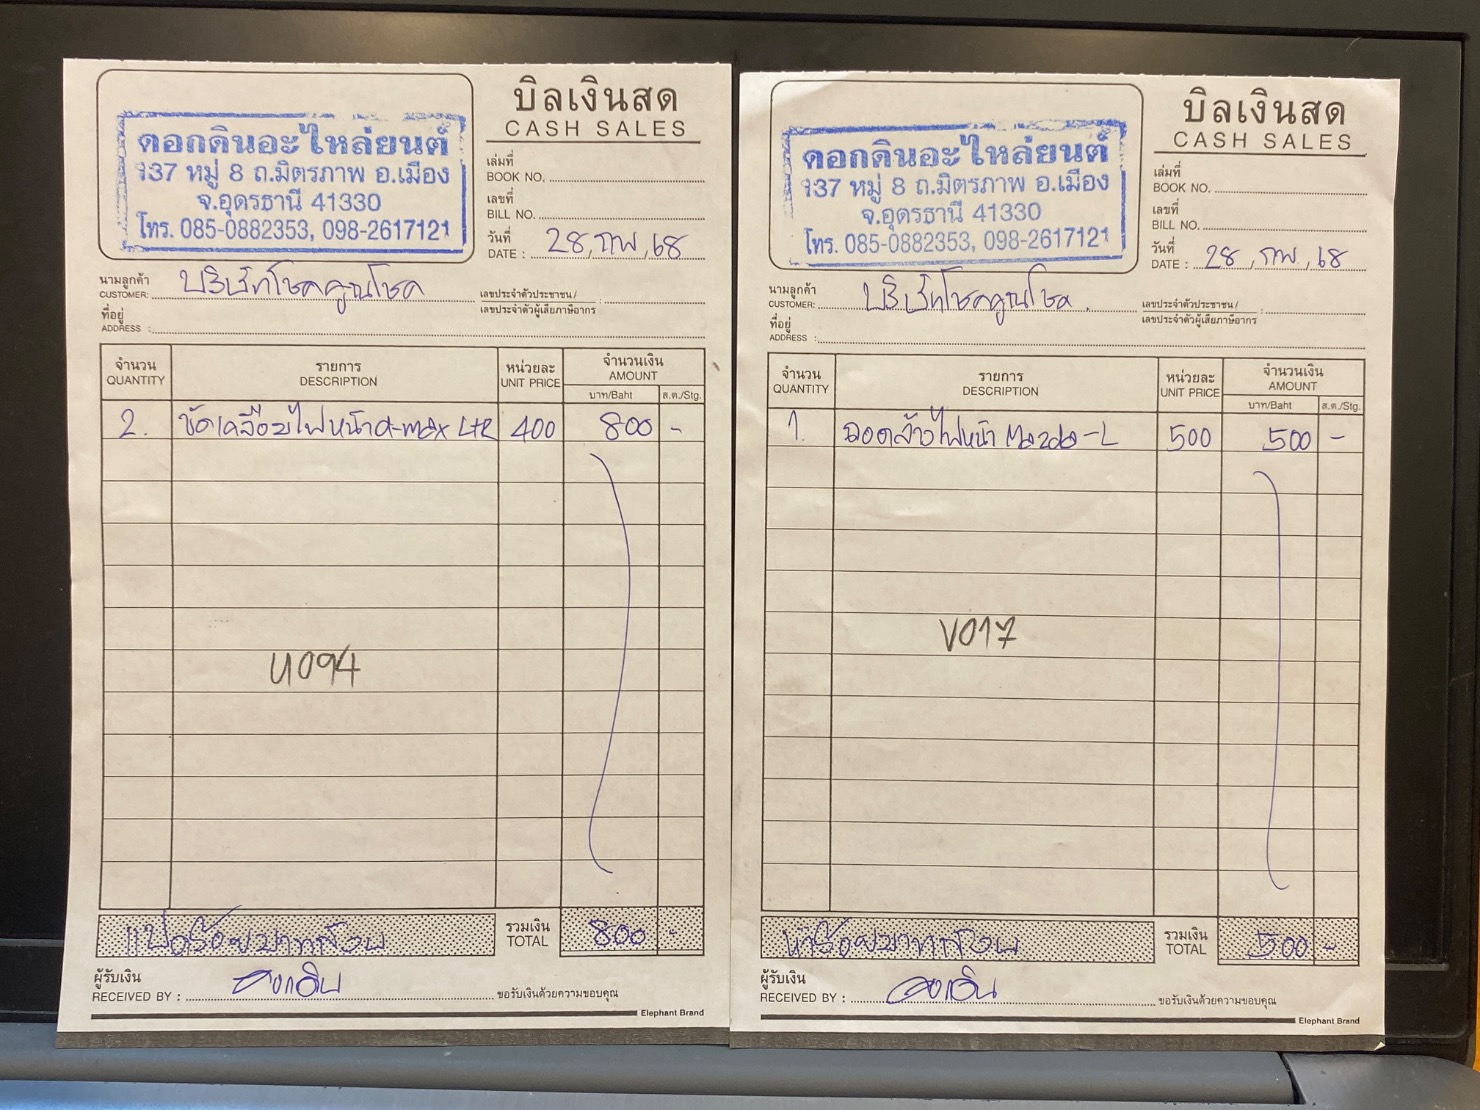 บิลเงินสด
CASH SALES
ดอกดินอะไหล่ยนต์
137 หมู่ 8 ถ.มิตรภาพ อ.เมือง
จ.อุดรธานี 41330
โทร. 085-0882353, 098-2617121
เล่มที่
BOOK NO.
เลขที่
BILL NO.
วันที่
DATE : 28, กพ, 68
นามลูกค้า
CUSTOMER: บริษัทโชคคูณโชค
เลขประจำตัวประชาชน /
เลขประจำตัวผู้เสียภาษีอากร :
ที่อยู่
ADDRESS :
จำนวน รายการ หน่วยละ จำนวนเงิน
QUANTITY DESCRIPTION UNIT PRICE AMOUNT
บาท/Baht ส.ต./Stg.
2. ขัดเคลือบไฟหน้า d-max L+R 400 800 -
U094
แปดร้อยบาทถ้วน รวมเงิน TOTAL 800 -
ผู้รับเงิน
RECEIVED BY : ดอกดิน ขอรับเงินด้วยความขอบคุณ
Elephant Brand
บิลเงินสด
CASH SALES
ดอกดินอะไหล่ยนต์
137 หมู่ 8 ถ.มิตรภาพ อ.เมือง
จ.อุดรธานี 41330
โทร. 085-0882353, 098-2617121
เล่มที่
BOOK NO.
เลขที่
BILL NO.
วันที่
DATE : 28, กพ, 68
นามลูกค้า
CUSTOMER: บริษัทโชคคูณโชค
เลขประจำตัวประชาชน /
เลขประจำตัวผู้เสียภาษีอากร :
ที่อยู่
ADDRESS :
จำนวน รายการ หน่วยละ จำนวนเงิน
QUANTITY DESCRIPTION UNIT PRICE AMOUNT
บาท/Baht ส.ต./Stg.
1. ถอดล้างไฟหน้า Mazda-L 500 500 -
V017
ห้าร้อยบาทถ้วน รวมเงิน TOTAL 500 -
ผู้รับเงิน
RECEIVED BY : ดอกดิน ขอรับเงินด้วยความขอบคุณ
Elephant Brand